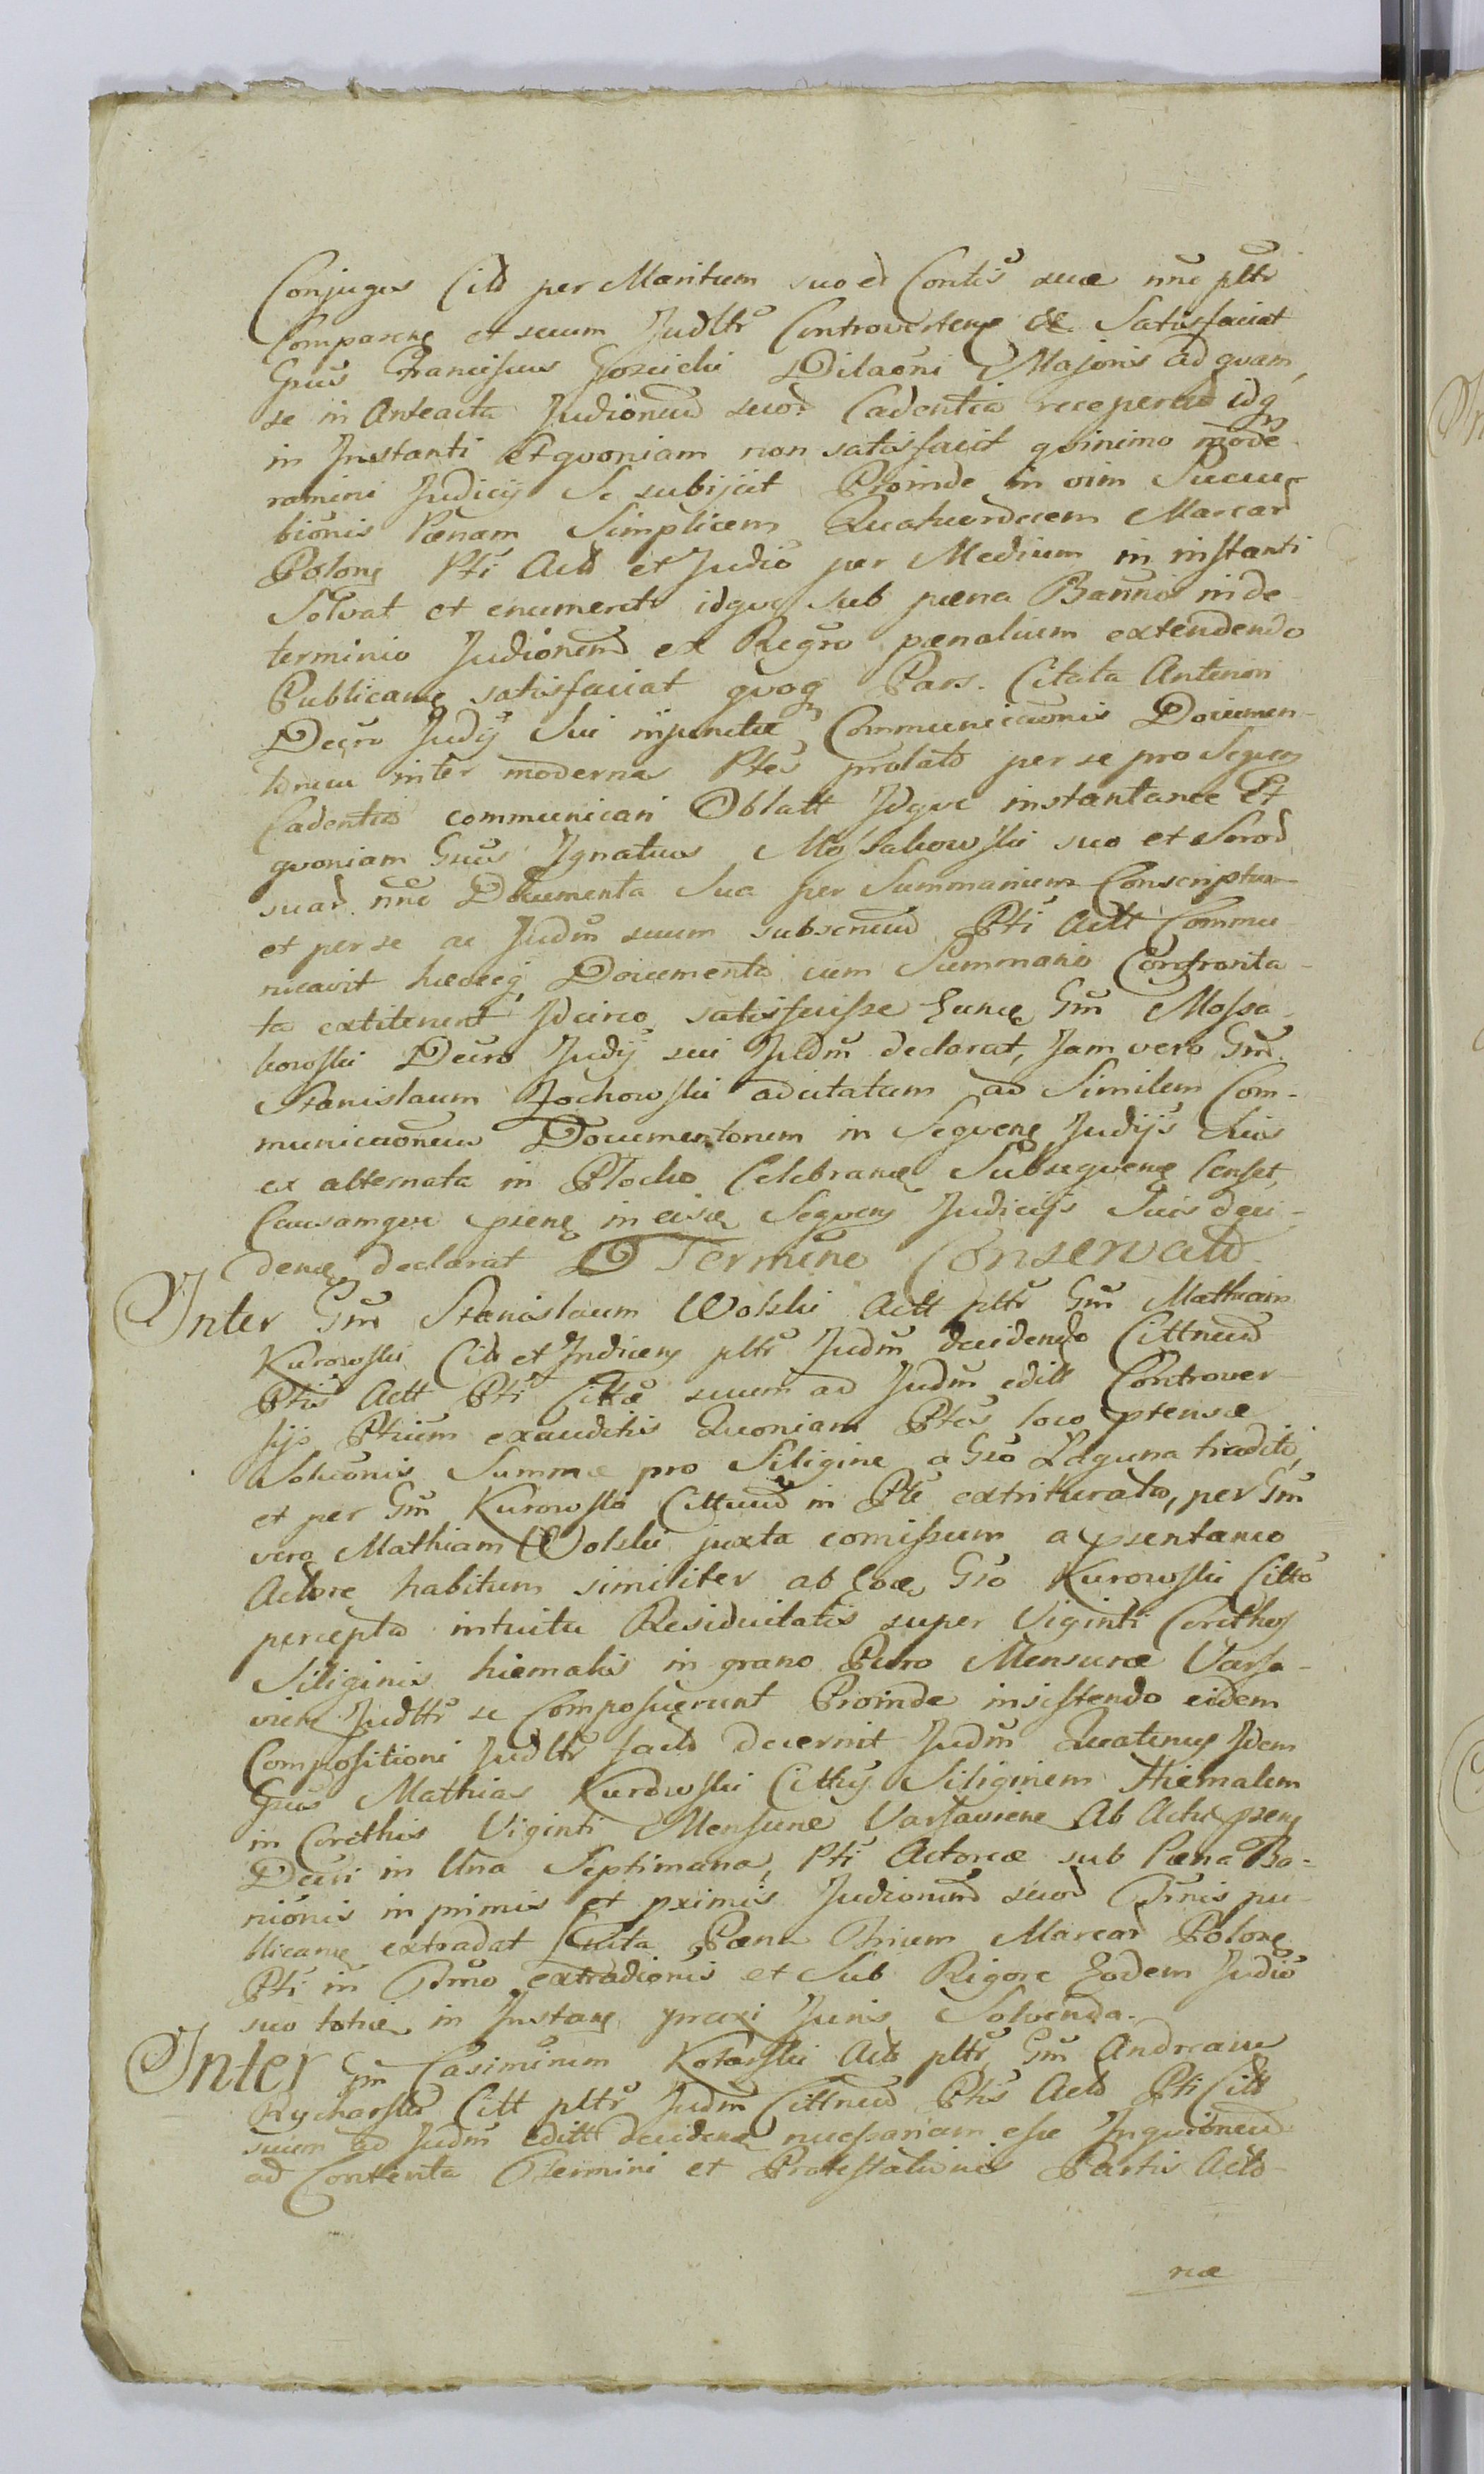 Conjuges Citt per Maritum suo et Contis suæ nne pltr
Comparens et suum Judltr Controvertens & Satisfaciat
Gnus Franciscus Gorecki Dilaõni Majoris ad quam
se in Anteacta Judionum suor Cadentia receperat idq
in Instanti Et quoniam non satisfacit quinimo mode-
ramini Judicij Se subijcit Proinde in vim Succu-
bionis Pœnam Simplicem Quatuordecem Marcar
Polon Pti Act et Judio per Medium in instanti
Solvat et enumeret idque sub pœna Banni in de-
terminio Judionum ex Regro pœnalium extendendo
Publicans satisfaciat quoq Pars Citata Anteriori
Decro Judij Sui injunctæ Communicaonis Documen-
torum inter modernas Ptes prolato per se pro Sequen
Cadentia communicari Oblatt Idque instantanee Et
quoniam Gnus Ignatius Mossakowski suo et Soror
suar nne Documenta Sua per Summarium Conscriptum
et per se ac Judm suum subscriptum Pti Actt Commu-
nicavit hæcceq Documenta cum Summario Confronta-
ta extiterunt Idcirco satisfecisse hunc Gm Mossa-
kowski Decro Judij sui Judm declarat, Jam vero Gm
Stanislaum Zochowski adcitatum ad Similem Com-
municaonem Documentorum in Sequen Judijs Suis
ex alternata in Plocko Celebran Subsequens Censet,
Causamque præn in eisd Sequen Judicijs Suis deci-
dens declarat Termino Conservato
Inter Gm Stanislaum Wolski Actt pltr Gm Mathiam
Kurowski Citt et Indicens pltr Judm decidendo Cittnem
Ptis Actt Pti Cittæ suum ad Judm editt Controver-
sijs Ptium exauditis Quoniam Ptes loco prensæ
Solucionis Summæ pro Siligine a Gso Laguna tradita,
et per Gm Kurowski Cittum in Pte extriturata, per Gm
vero Mathiam Wolski juxta comissum a præsentaneo
Actore habitum similiter ab eod Gso Kurowski Citto
percepta intuitu Residuitatis super Viginti Corethos
Siliginis hiemalis in grano Puro Mensuræ Varsa-
vien Judltr se Composuerunt Proinde insistendo eidem
Compositioni Judltr facta decernit Judm Quatenus Idem
Gnus Mathias Kurowski Cittus Siliginem Hiemalem
in Corethis Viginti Mensuræ Varsaviens Ab Actu præn
Decri in Una Septimana, Pti Actoreæ sub Pœna Ba-
nionis in primis et pximis Judionum suor Tmis pu-
blicans extradat Pœna Trium Marcar Polon
Pti in Tmo extradionis et Sub Rigore Eodem Judio
suo toties in Instan præxi Juris Solvenda.
Inter Gm Casimirum Kotarski Act pltr Gm Andream
Rycharski Citt pltr Judm Cittnem Ptis Act Pti Citt
suum ad Judm editt decidens necessariam esse Inquionem
ad Contenta Termini et Protestationis Partis Acto-
reæ